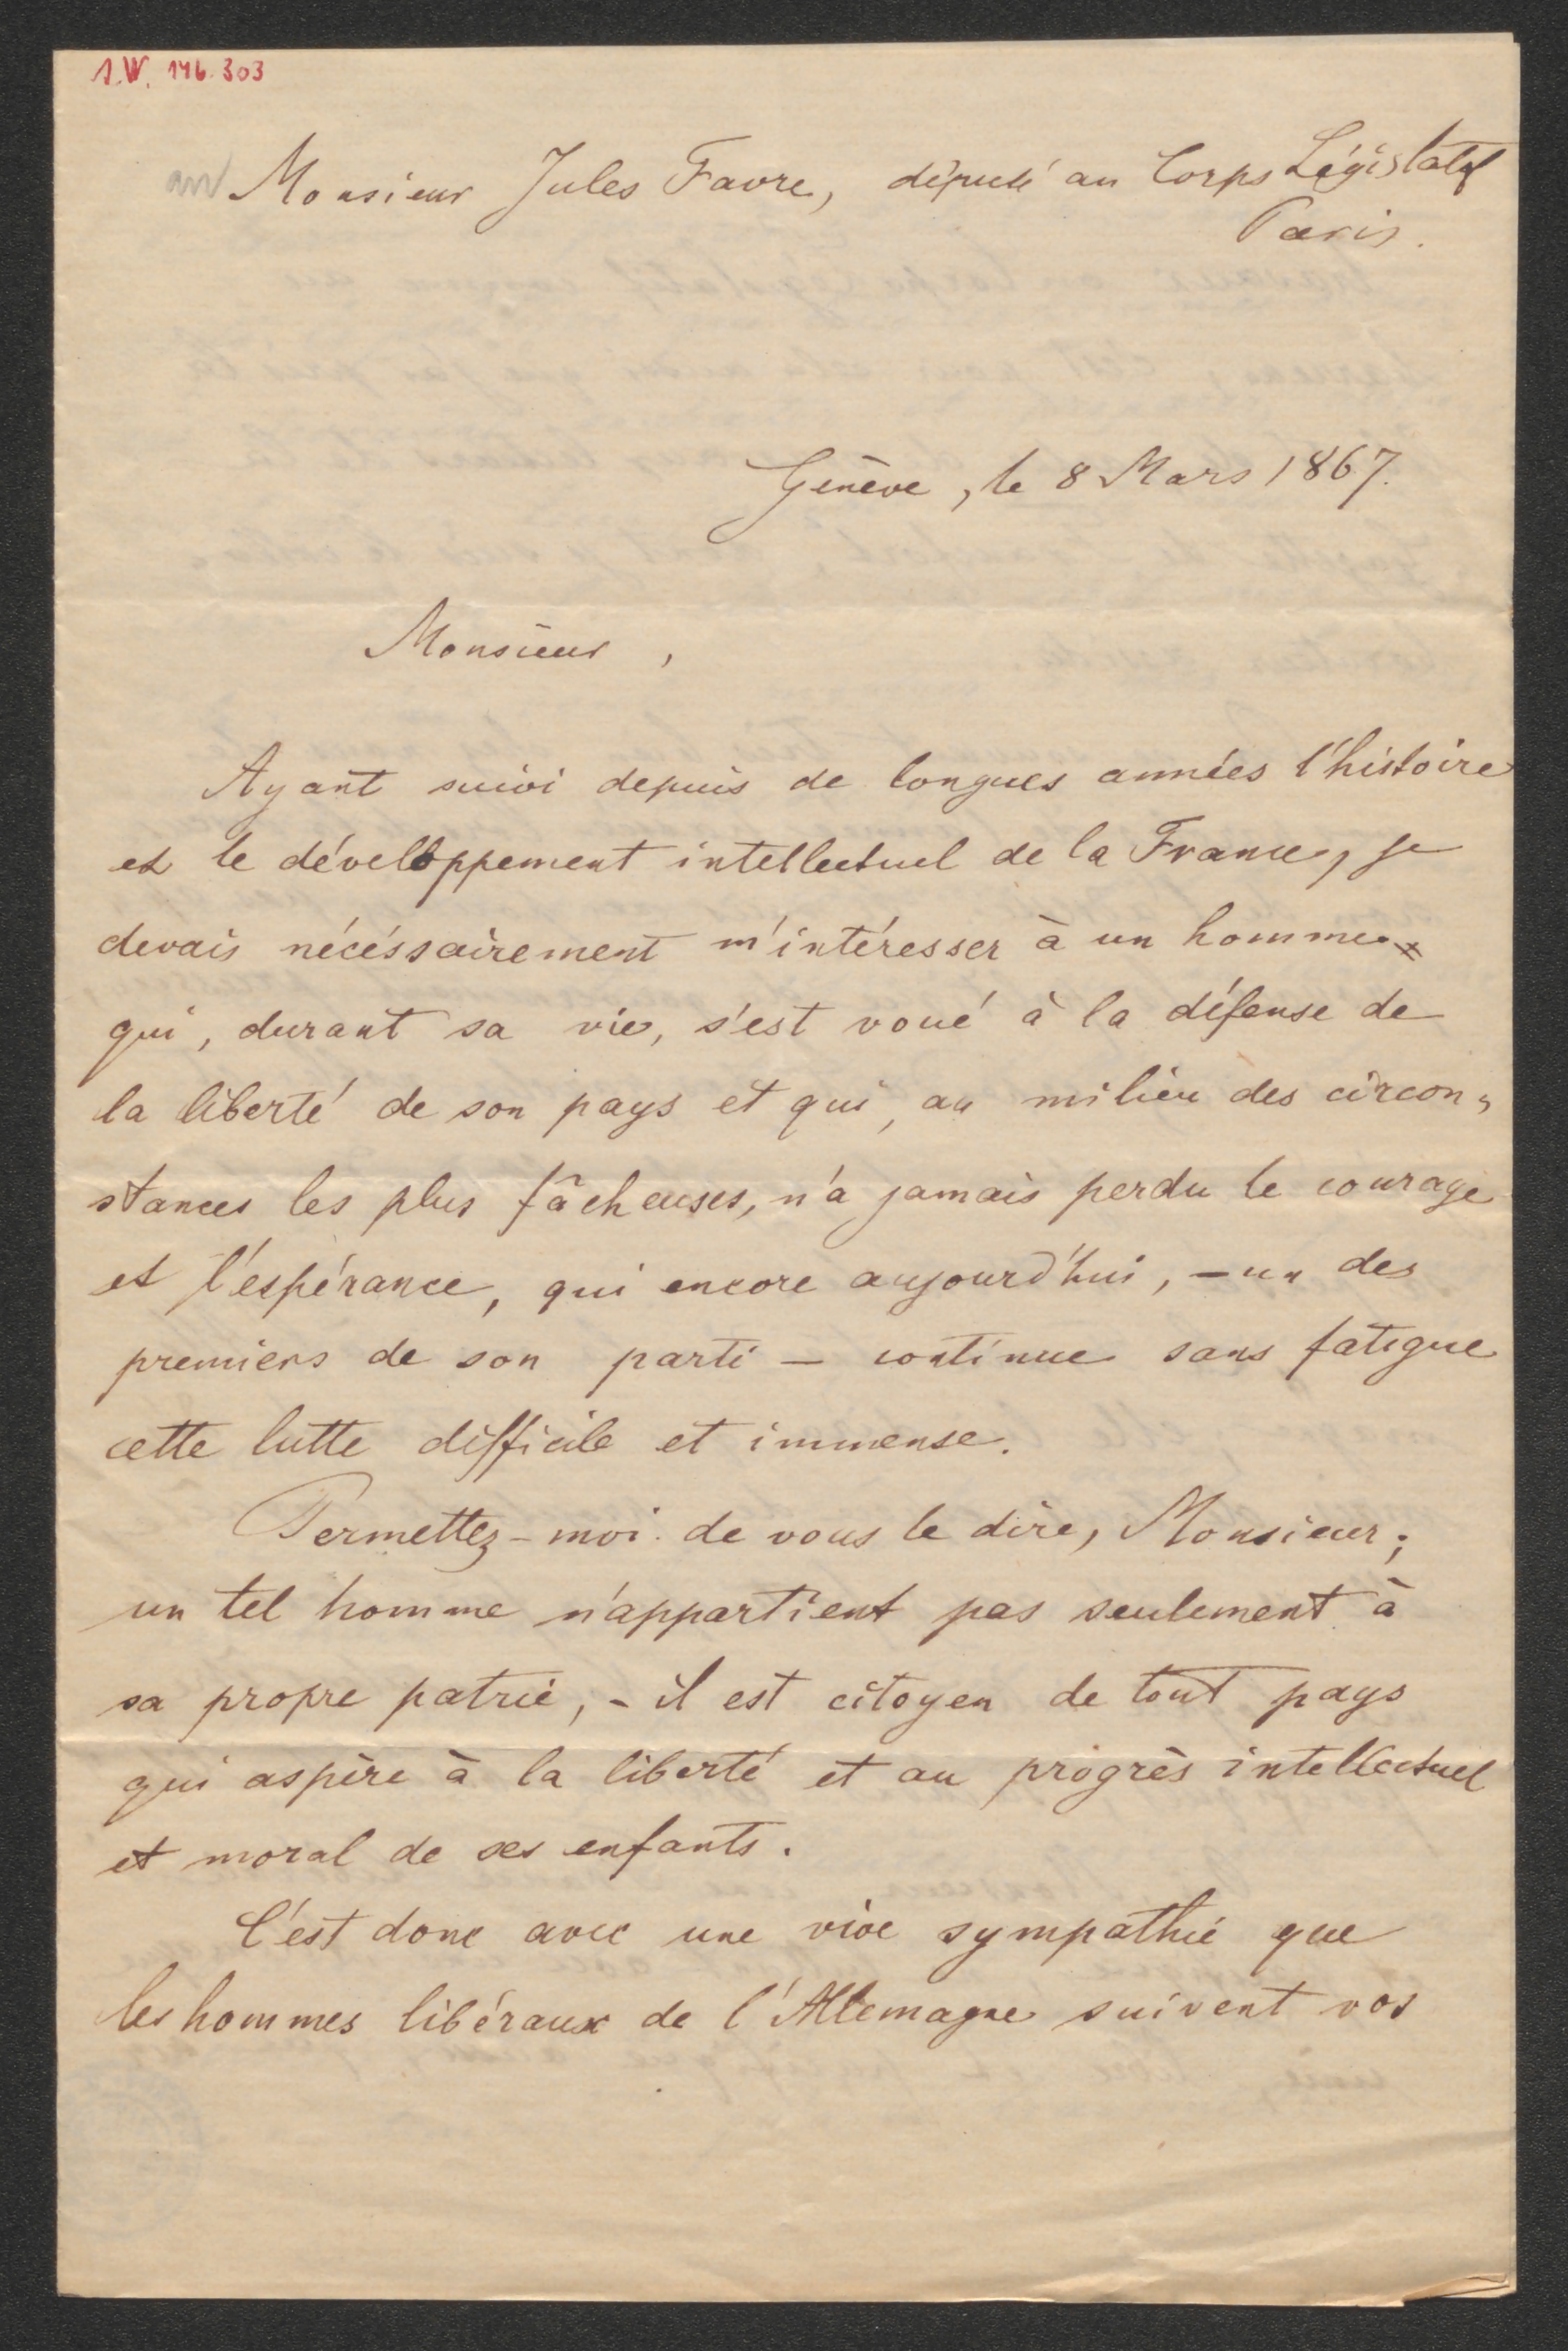 I.W. 146.303
Monsieur Jules Favre, député au Corps Législatif
Paris.
Génève, le 8 Mars 1867.
Monsieur,
Ayant suivi depuis de longues années l'histoire
et le développement intellectuel de la France, je
devais nécéssairement m'intéresser à un homme
qui, durant sa vie, s'est voué à la défense de
la liberté de son pays et qui, au milieu des circon-
stances les plus fâcheuses, n'a jamais perdu le courage
et l'espérance, qui encore aujourd'hui, - un des
premiers de son parti - continue sans fatigue
cette lutte difficile et immense.
Permettez-moi de vous le dire, Monsieur;
un tel homme n'appartient pas seulement à
sa propre patrie, - il est citoyen de tout pays
qui aspère à la liberté et au progrès intellectuel
et moral de ses enfants.
C'est donc avec une vive sympathie que
les hommes libéraux de l'Allemagne suivent vos